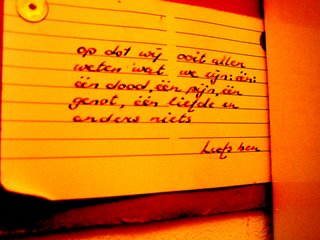 op dat wij ooit allen
weten wat we zijn: één:
één dood, één pijn, één
genot, één liefde en
anders niets
Liefs